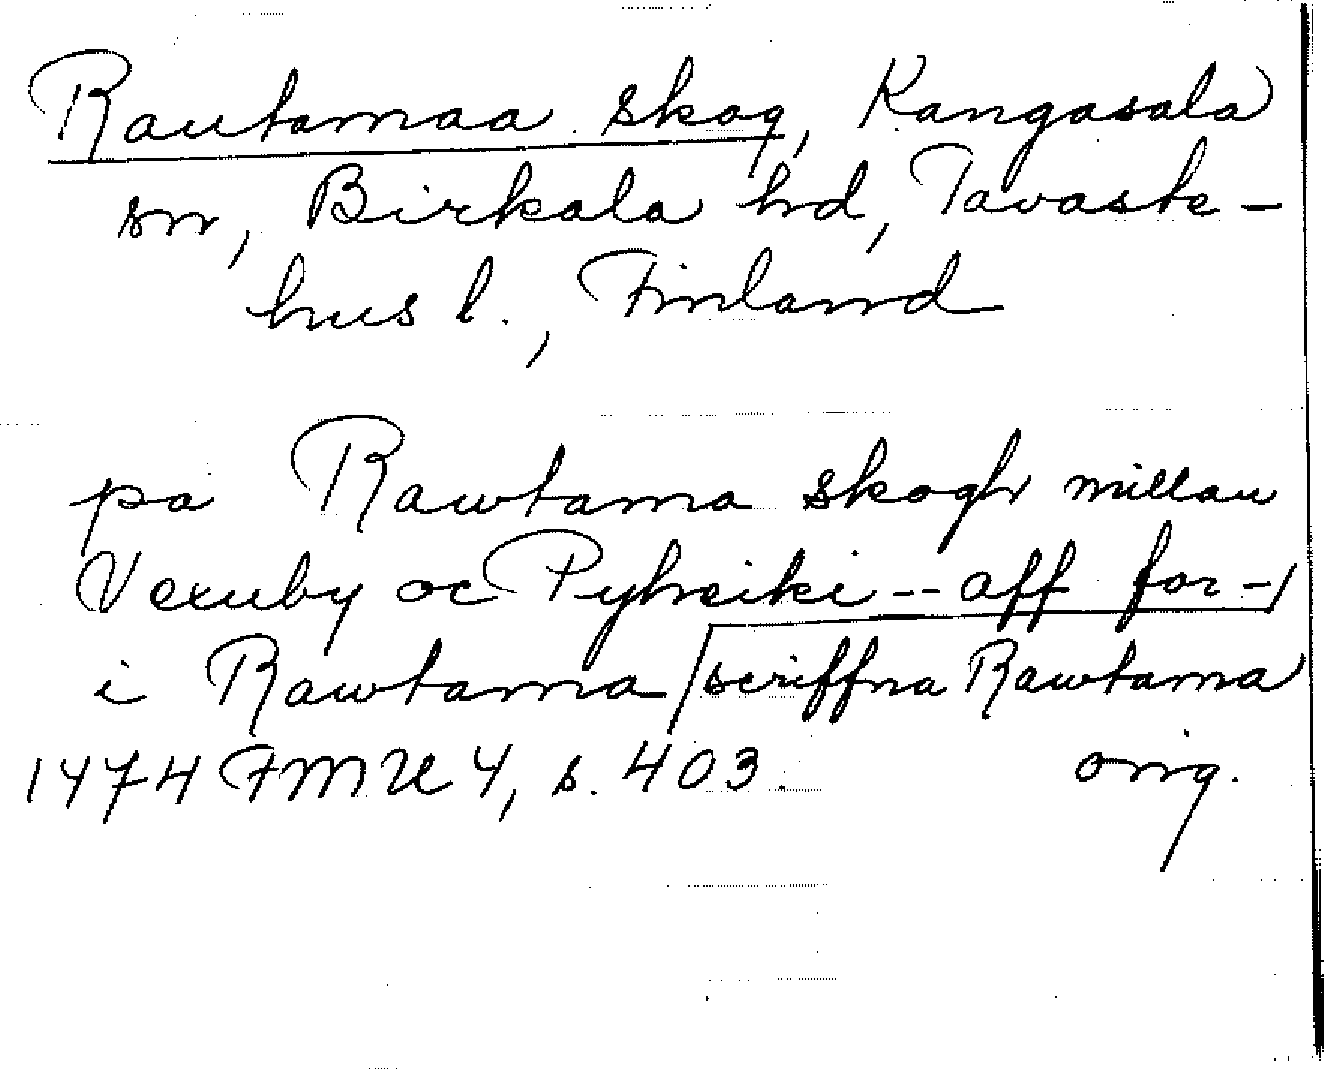 Rautamaa skog, Kangasala
sn, Birkala hd, Tavaste-
hus l., Finland
pa Rawtama skogh millan
Vexuby oc Pyheiki -- aff for-
i Rawtama scriffna Rawtama
1474 FMU 4, s. 403. orig.